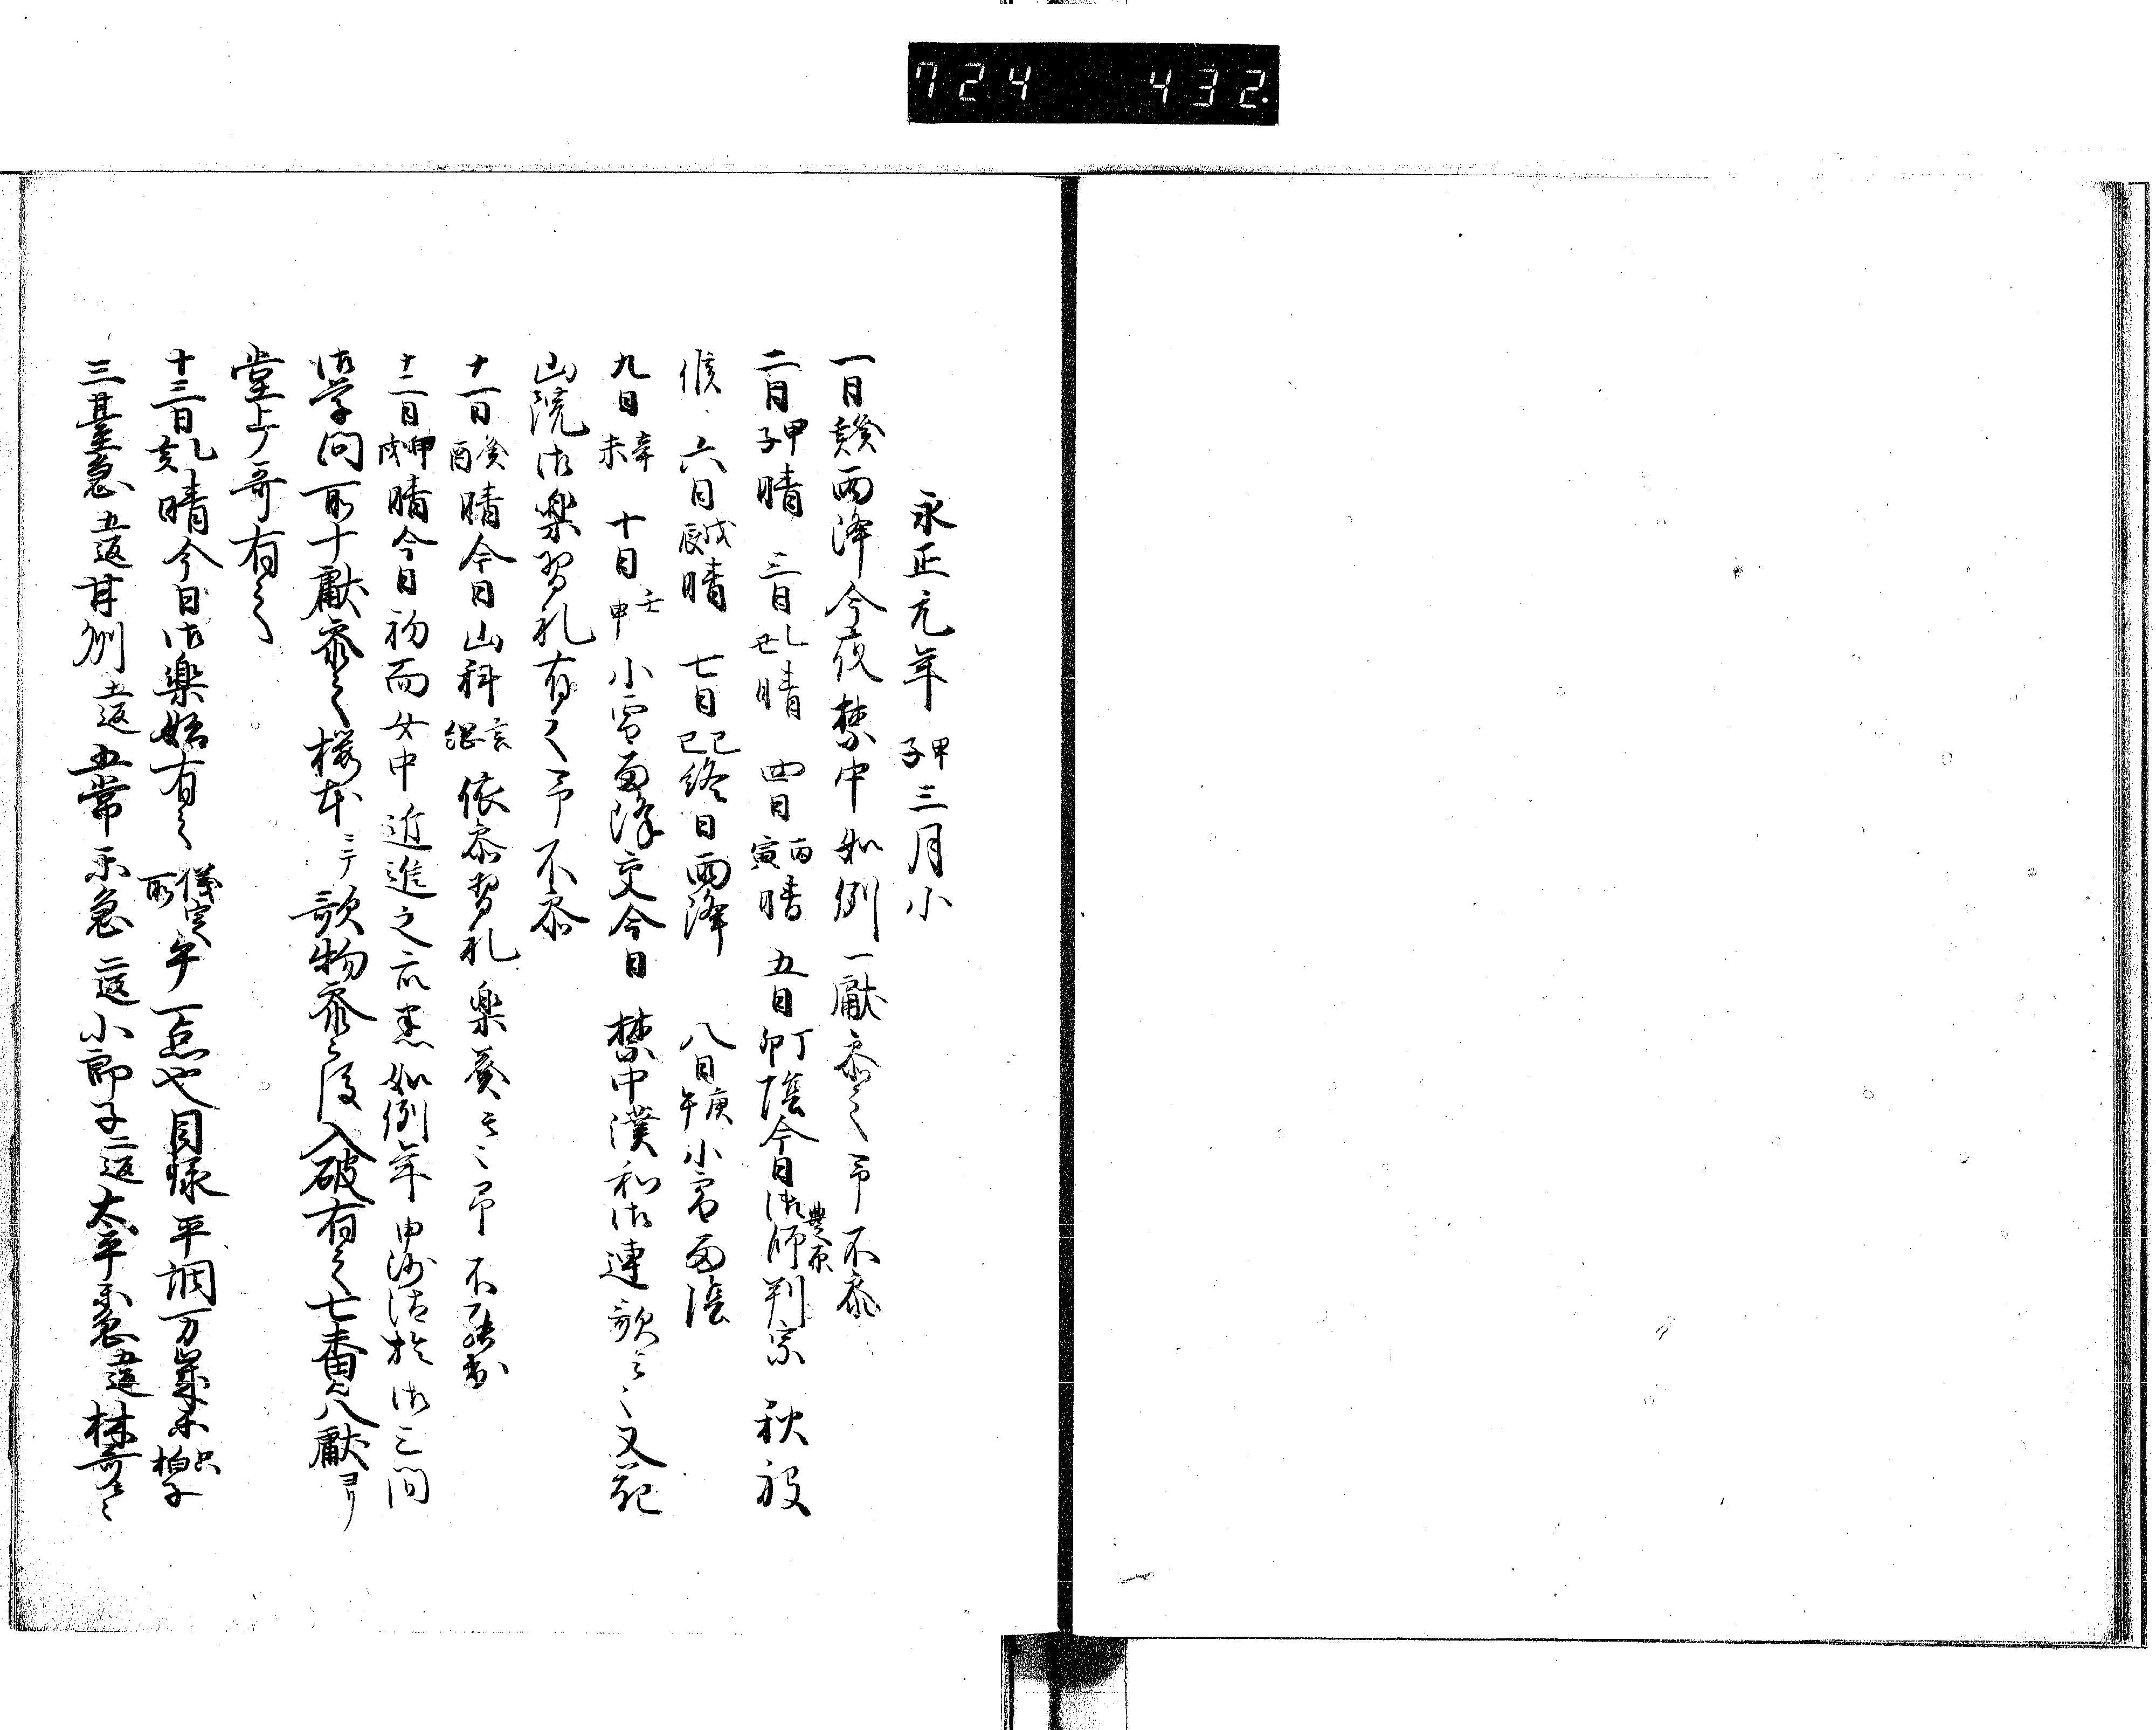 724 432.
永正元年甲子三月小
一日癸亥雨降今夜禁中如例一獻参之予不参
二日甲子晴 三日乙丑晴 四日丙寅晴 五日丁卯陰今日御師豊原判宗秋被
候 六日戊辰晴 七日己巳終日雨降 八日庚午小雪雨陰
九日辛未 十日壬申小雪雨降交今日禁中漢和御連歌云々又花
山院御楽習礼有之予不参
十一日癸酉晴今日山科言綱依参習礼楽奏云々予不
十二日甲戌晴今日初而女中近進之如例年申沙汰於御三間
御学問所十獻参之様本三テ歌物参之後入破有之七番八獻ヨリ
堂上哥有之
十三日乙亥晴今日御楽始有之儀定所午一点也目録平調万歳楽只拍子
三臺急五返甘州五返五常楽急二返小郎子二返太平楽急五返林哥云々